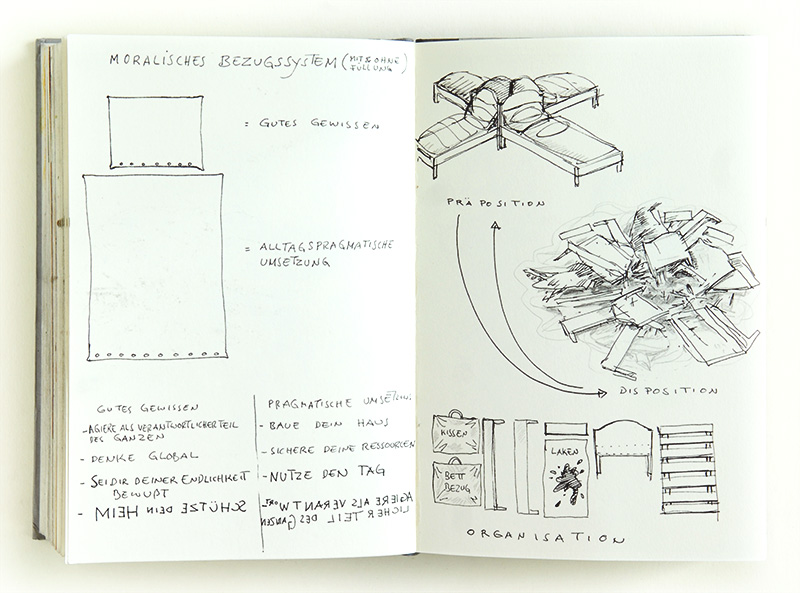 MORALISCHES BEZUGSSYSTEM (MIT & OHNE
FÜLLUNG)
= GUTES GEWISSEN
= ALLTAGSPRAGMATISCHE
UMSETZUNG
GUTES GEWISSEN
- AGIERE ALS VERANTWORTLICHER TEIL
DES GANZEN
- DENKE GLOBAL
- SEI DIR DEINER ENDLICHKEIT
BEWUßT
- SCHÜTZE DEIN HEIM
PRAGMATISCHE UMSETZUNG
- BAUE DEIN HAUS
- SICHERE DEINE RESSOURCEN
- NUTZE DEN TAG
AGIERE ALS VERANTWORT-
LICHER TEIL DES GANZEN
PRÄPOSITION
DISPOSITION
KISSEN
BETT
BEZUG
LAKEN
ORGANISATION